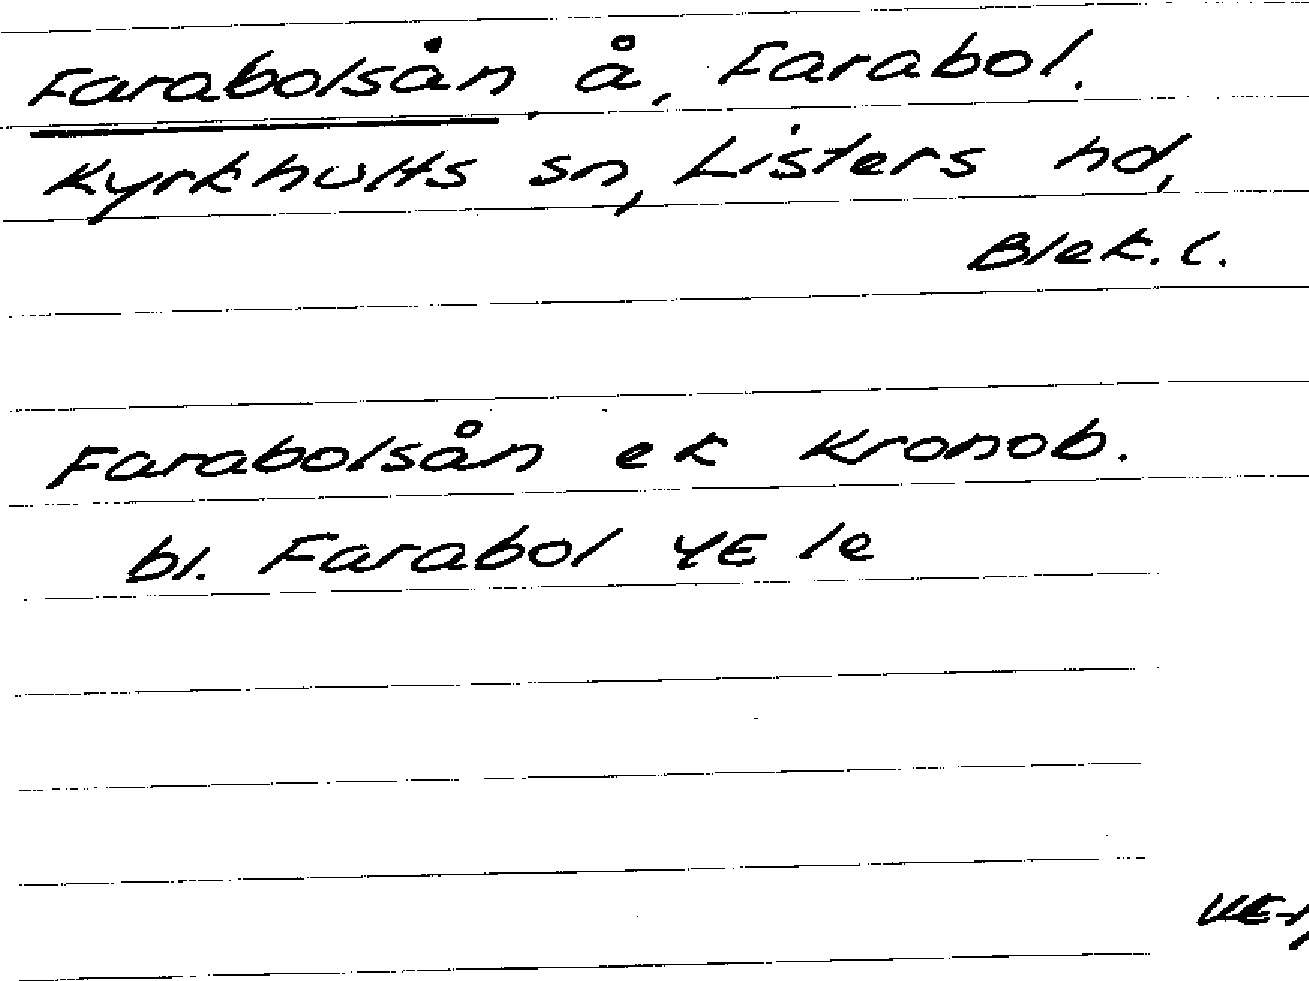 Farabolsån å, Farabol.
Kyrkhults sn, Listers hd,
Blek. l.
Farabolsån ek Kronob.
bl. Farabol 4E le